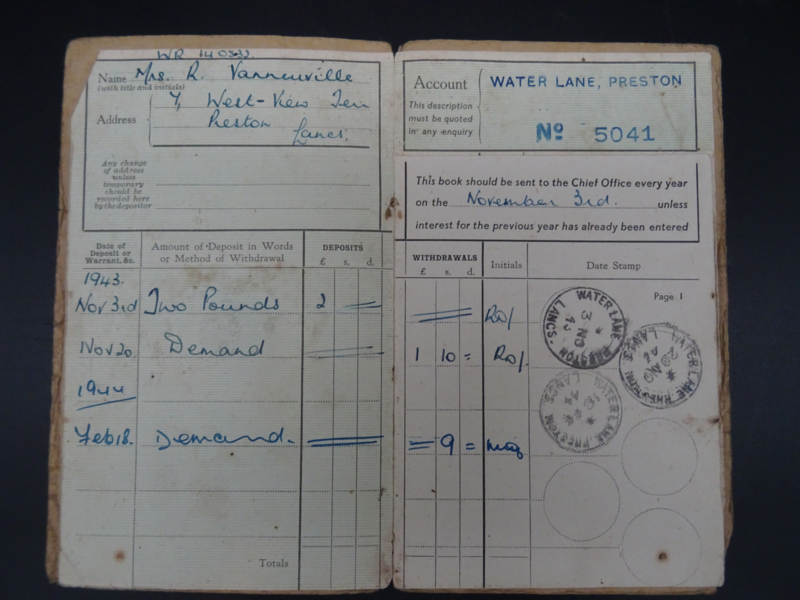 WR 140532
Name Mrs. R. Vanneuville
(with title and initials)
Address
7, West-View Terr
Preston
Lancs.
Any change
of address
unless
temporary
should be
recorded here
by the depositor
Account WATER LANE, PRESTON
This description
must be quoted
in any enquiry
No 5041
This book should be sent to the Chief Office every year
on the November 3rd. unless
interest for the previous year has already been entered
Date of
Deposit or
Warrant, &c.
Amount of Deposit in Words
or Method of Withdrawal
DEPOSITS
£ s. d.
WITHDRAWALS
£ s. d.
Initials
Date Stamp
Page 1
1943.
Nov 3rd Two Pounds 2
Nov 20 Demand 1 10 =
1944
Feb 18. Demand. = 9 =
Totals
WATER LANE PRESTON
LANCS.
3 NO
43
WATER LANE PRESTON
LANCS.
WATER LANE PRESTON
LANCS.